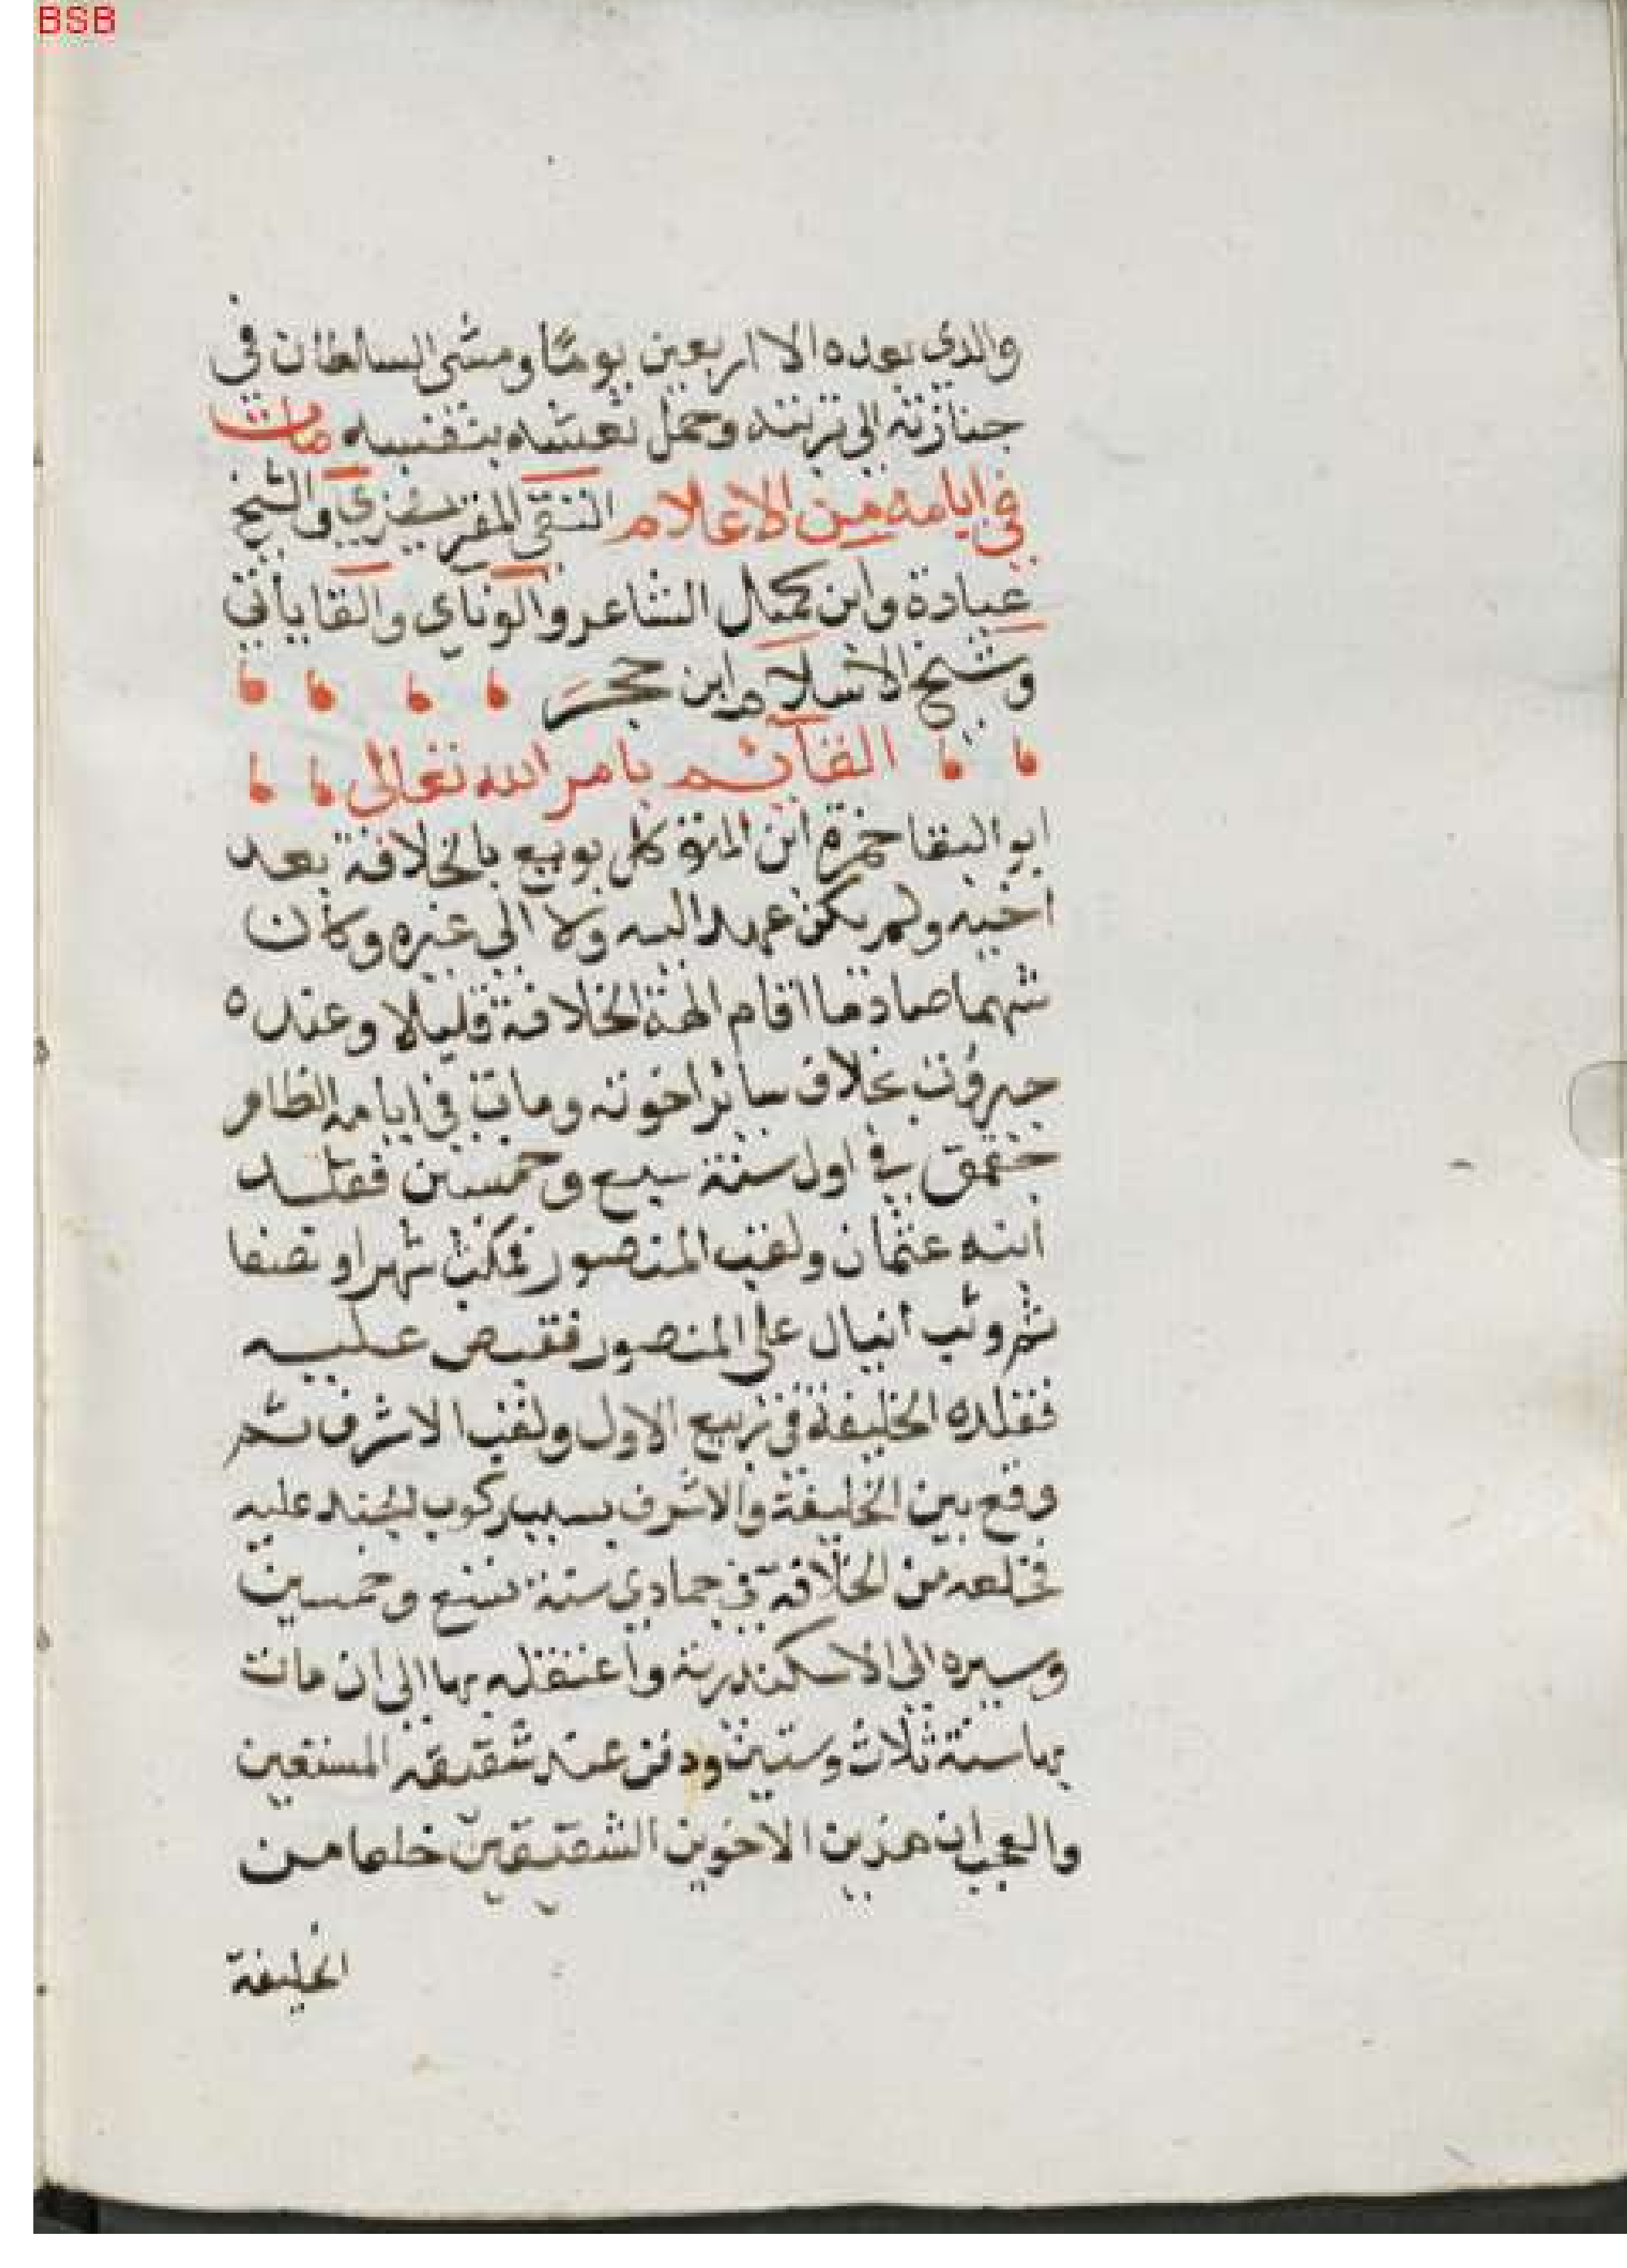 BSB
والدي بعده الا اربعين يوما ومشى السلطان في
جنازته الى تربته وحمل نعشه بنفسه مات
في ايامه من الاعلام التقي المقريزي والشيخ
عبادة وابن كميل الشاعر والوناي والقاياتي
وشيخ الاسلام ابن حجر
القائم بامر الله تعالى
ابو البقا حمزة ابن المتوكل بويع بالخلافة بعد
اخيه ولم يكن عهد اليه ولا الى غيره وكان
شهما صارما اقام ابهة الخلافة قليلا وعنده
جبروت بخلاف سائر اخوته ومات في ايامه الظاهر
جقمق في اول سنة سبع وخمسين فقلد
ابنه عثمان ولقب المنصور فمكث شهرا ونصفا
ثم وثب اينال على المنصور فقبض عليه
فقلده الخليفة في ربيع الاول ولقب الاشرف ثم
وقع بين الخليفة والاشرف بسبب ركوب الجند عليه
فخلعه من الخلافة في جمادى سنة تسع وخمسين
وسيره الى الاسكندرية واعتقله بها الى ان مات
بها سنة ثلاث وستين ودفن عند شقيقه المستعين
والعجب ان هذين الاخوين الشقيقين خلعا من
الخليفة